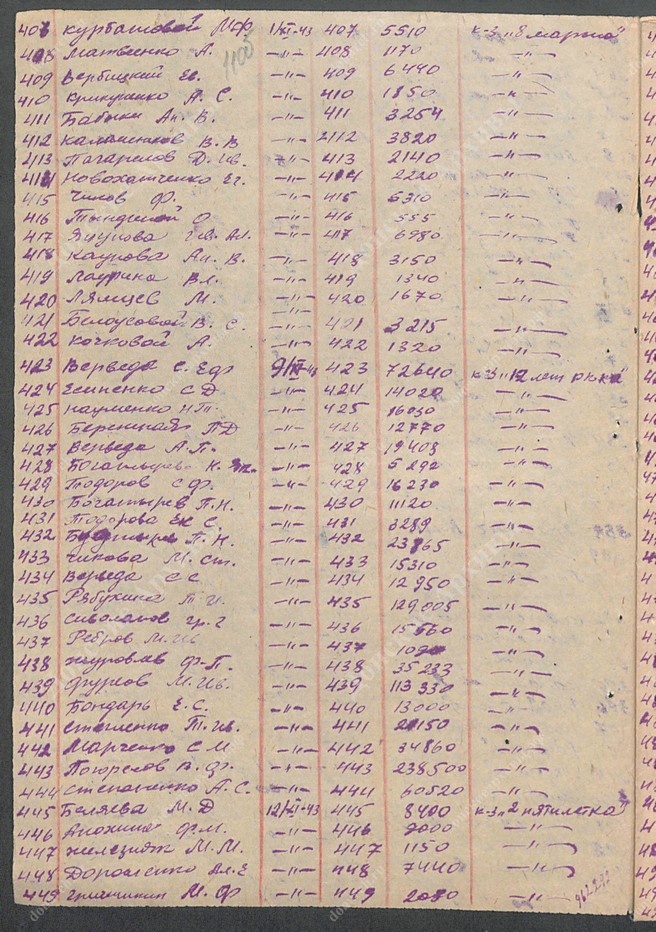 407 Курбатовой М.Ф. 1/XI-43 407 5510 к-з "8 марта"
1100
408 Матвеенко А. -"- 408 1170 -"-
409 Вербицкий Ев. -"- 409 6440 -"-
410 А. С. -"- 410 1850 -"-
411 Бабкин Ан. В. -"- 411 3254 -"-
412 В. В -"- 2112 3820 -"-
413 Д. Ив. -"- 413 2140 -"-
414 Ег. -"- 414 2220 -"-
415 Чилов Ф. -"- 415 5310 -"-
416 О -"- 416 555 -"-
417 Ив. Ал. -"- 417 6980 -"-
418 Каурова Ан. В. -"- 418 3150 -"-
419 Лаврина Вл. -"- 419 1340 -"-
420 Лямцев М. -"- 420 1670 -"-
421 Белоусовой В. С. -"- 421 3215 -"-
422 Кочковой А. -"- 422 1320 -"-
423 Верведа С. Еф 9/XI-43 423 72640 к-з "12 лет РККА"
424 Есипенко С Д -"- 424 14020 -"-
425 Науменко -"- 425 16030 -"-
426 П Д -"- 426 12770 -"-
427 Верведа А. П. -"- 427 19403 -"-
428 -"- 428 5292 -"-
429 Тодоров С. Ф. -"- 429 16230 -"-
430 Богатырев П. Н. -"- 430 11120 -"-
431 Тодорова Ек С. -"- 431 3289 -"-
432 П. Н. -"- 432 23865 -"-
433 Чикова М. Ст. -"- 433 15310 -"-
434 Верведа С С. -"- 434 12950 -"-
435 Рябухина Т И. -"- 435 129005 -"-
436 Сиволапов Гр. Г -"- 436 15560 -"-
437 Ребров М. Ив -"- 437 -"-
438 Журовлев Ф. П. -"- 438 35233 -"-
439 Фурсов М. Ив. -"- 439 113330 -"-
440 Бондарь Е. С. -"- 440 13000 -"-
441 Степленко Т. Ив. -"- 441 -"-
442 Марченко С М -"- 442 34860 -"-
443 Погорелов В. Ф. -"- 443 238500 -"-
444 Степаненко А. С. -"- 444 60520 -"-
445 Беляева М. Д 12/XI-43 445 8400 к-з "2 пятилетка"
446 Анохина Ф. М. -"- 446 7000 -"-
447 М. М. -"- 447 1150 -"-
448 Дорошенко Ал. Е -"- 448 7440 -"-
449 Гришикин М. Ф -"- 449 -"-
962292